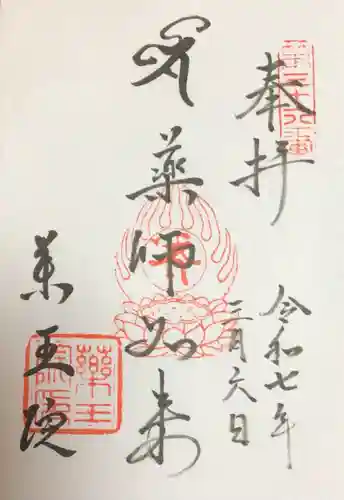 奉拝
令和七年
三月六日
薬師如来
薬王院
薬王院印